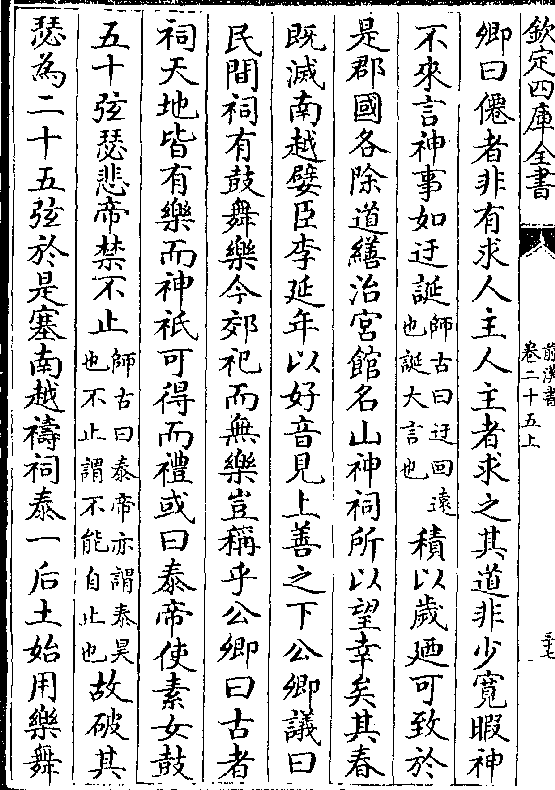 欽定四庫全書
前漢書
卷二十五上
三七
卿曰僊者非有求人主人主者求之其道非少寬暇神
不來言神事如迂誕師古曰迂回遠也誕大言也積以歲廼可致於
是郡國各除道繕治宮館名山神祠所以望幸矣其春
既滅南越嬖臣李延年以好音見上善之下公卿議曰
民間祠有鼓舞樂今郊祀而無樂豈稱乎公卿曰古者
祠天地皆有樂而神祇可得而禮或曰泰帝使素女鼓
五十弦瑟悲帝禁不止師古曰泰帝亦謂泰昊也不止謂不能自止也故破其
瑟為二十五弦於是塞南越禱祠泰一后土始用樂舞